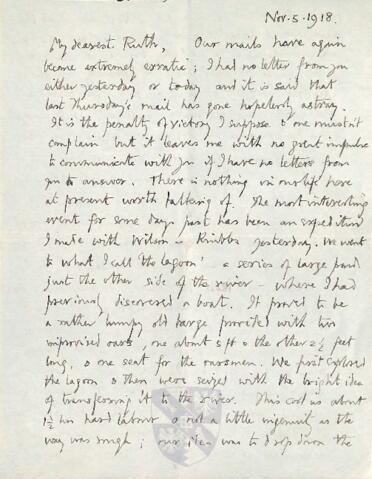 Nov. 5. 1918.
My dearest Ruth, Our mails have again
become extremely erratic; I had no letter from you
either yesterday or today and it is said that
last Thursday's mail has gone hopelessly astray.
It is the penalty of victory I suppose & one mustn't
complain but it leaves me with no great impulse
to communicate with you if I have no letters from
you to answer. There is nothing in our life here
at present worth talking of. The most interesting
event for some days past has been an expedition
I made with Wilson & Knibbs yesterday. We went
to what I call 'the lagoon' – a series of large pond
just the other side of the river – where I had
previously discovered a boat. It proved to be
a rather lumpy old barge provided with two
improvised oars, one about 5 ft & the other 2½ feet
long, & one seat for the oarsmen. We first explored
the lagoon & then were seized with the bright idea
of transferring it to the river. This cost us about
1½ hrs hard labour & not a little ingenuity as the
way was rough; our idea was to drop down the